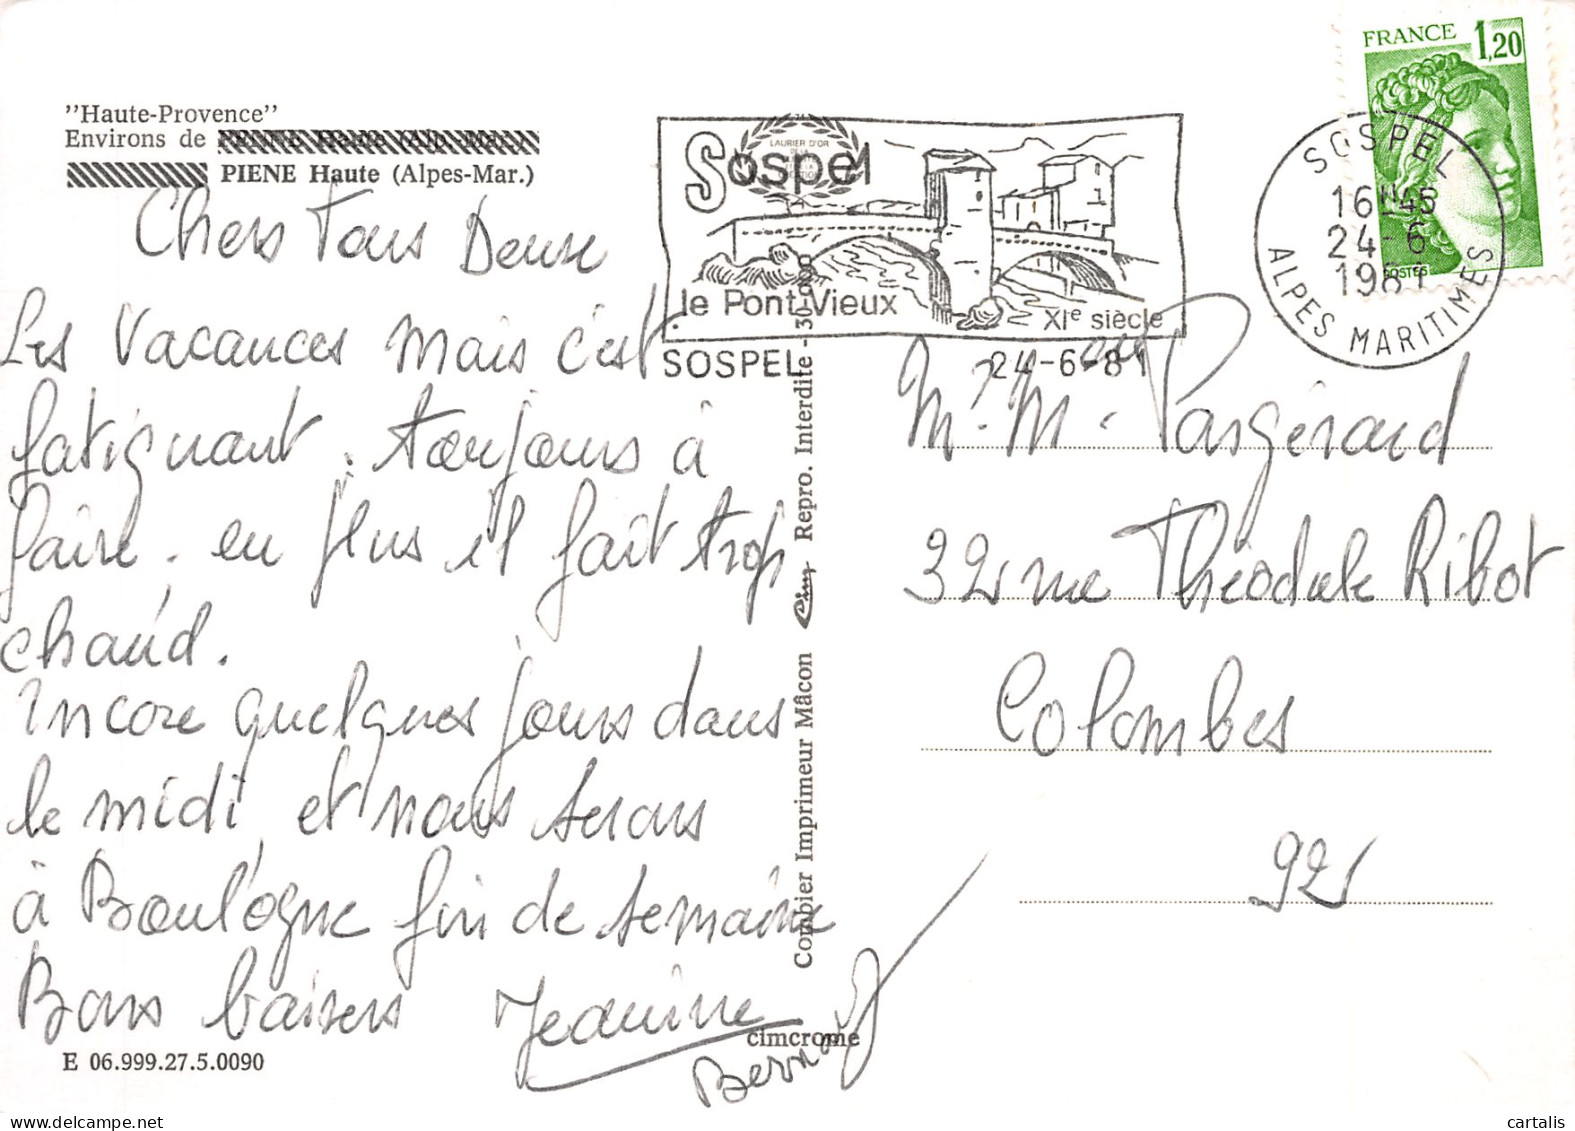 "Haute-Provence"
Environs de
PIENE Haute (Alpes-Mar.)
Chers Tous Deux
Les Vacances mais c'est
fatiguant. toujours à
faire. en plus il fait trop
chaud.
Encore quelques jours dans
le midi, et nous serons
à Boulogne fin de semaine
Bons baisers Jeanine
Bernard
E 06.999.27.5.0090
cimcrome
Combier Imprimeur Mâcon Cim Repro. Interdite - 30-090
Sospel
LAURIER D'OR
DE LA
le Pont-Vieux
XIe siècle
SOSPEL 24-6-81
SOSPEL
16H45
24-6
1981
ALPES MARITIMES
FRANCE 1,20
POSTES
Mr. Me Pasgérard
32 rue Théodule Ribot
Colombes
92
cartalis